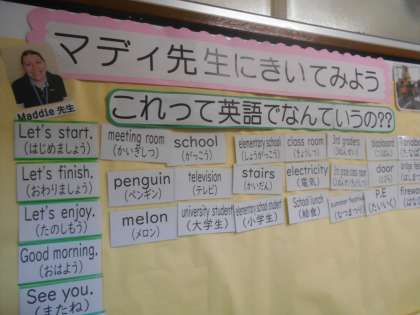 マディ先生にきいてみよう
Maddie 先生
これって英語でなんていうの??
Let's start.
(はじめましょう)
meeting room
(かいぎしつ)
school
(がっこう)
elementary school
(しょうがっこう)
class room
(きょうしつ)
3rd graders
Let's finish.
(おわりましょう)
penguin
(ペンギン)
television
(テレビ)
stairs
(かいだん)
electricity
(電気)
door
Let's enjoy.
(たのしもう)
melon
(メロン)
university student
(大学生)
elementary school student
(小学生)
School lunch
(給食)
summer festival
(なつまつり)
P.E
(たいいく)
Good morning.
(おはよう)
See you.
(またね)